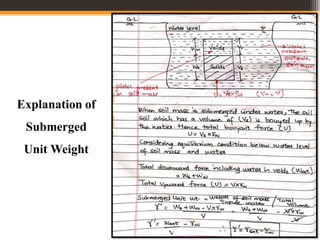 Explanation of
Submerged
Unit Weight
G.L
Water level
G.L
Water
Solids
Ww
Vw
Ws
Solids
Vs
Water present
outside
soil mass
Water present
in soil mass
When soil mass is submerged under water, the soil
soil which has a volume of (Vs) is buoyed up by
the water. Hence total buoyant force (U)
U = Vs × rw
Considering equilibrium condition below water level
of soil mass and water
Total downward force including water in voids (Wsat)
= Ws + Ww
Total Upward force (U) = V × rw
Submerged Unit wt = Weight of soil mass inside water / Total volume
γ' = Ws + Ww - V × rw / V = Ws + Ww / V - V rw / V
γ' = Wsat / V - rw
∴ γ' = rsat - rw